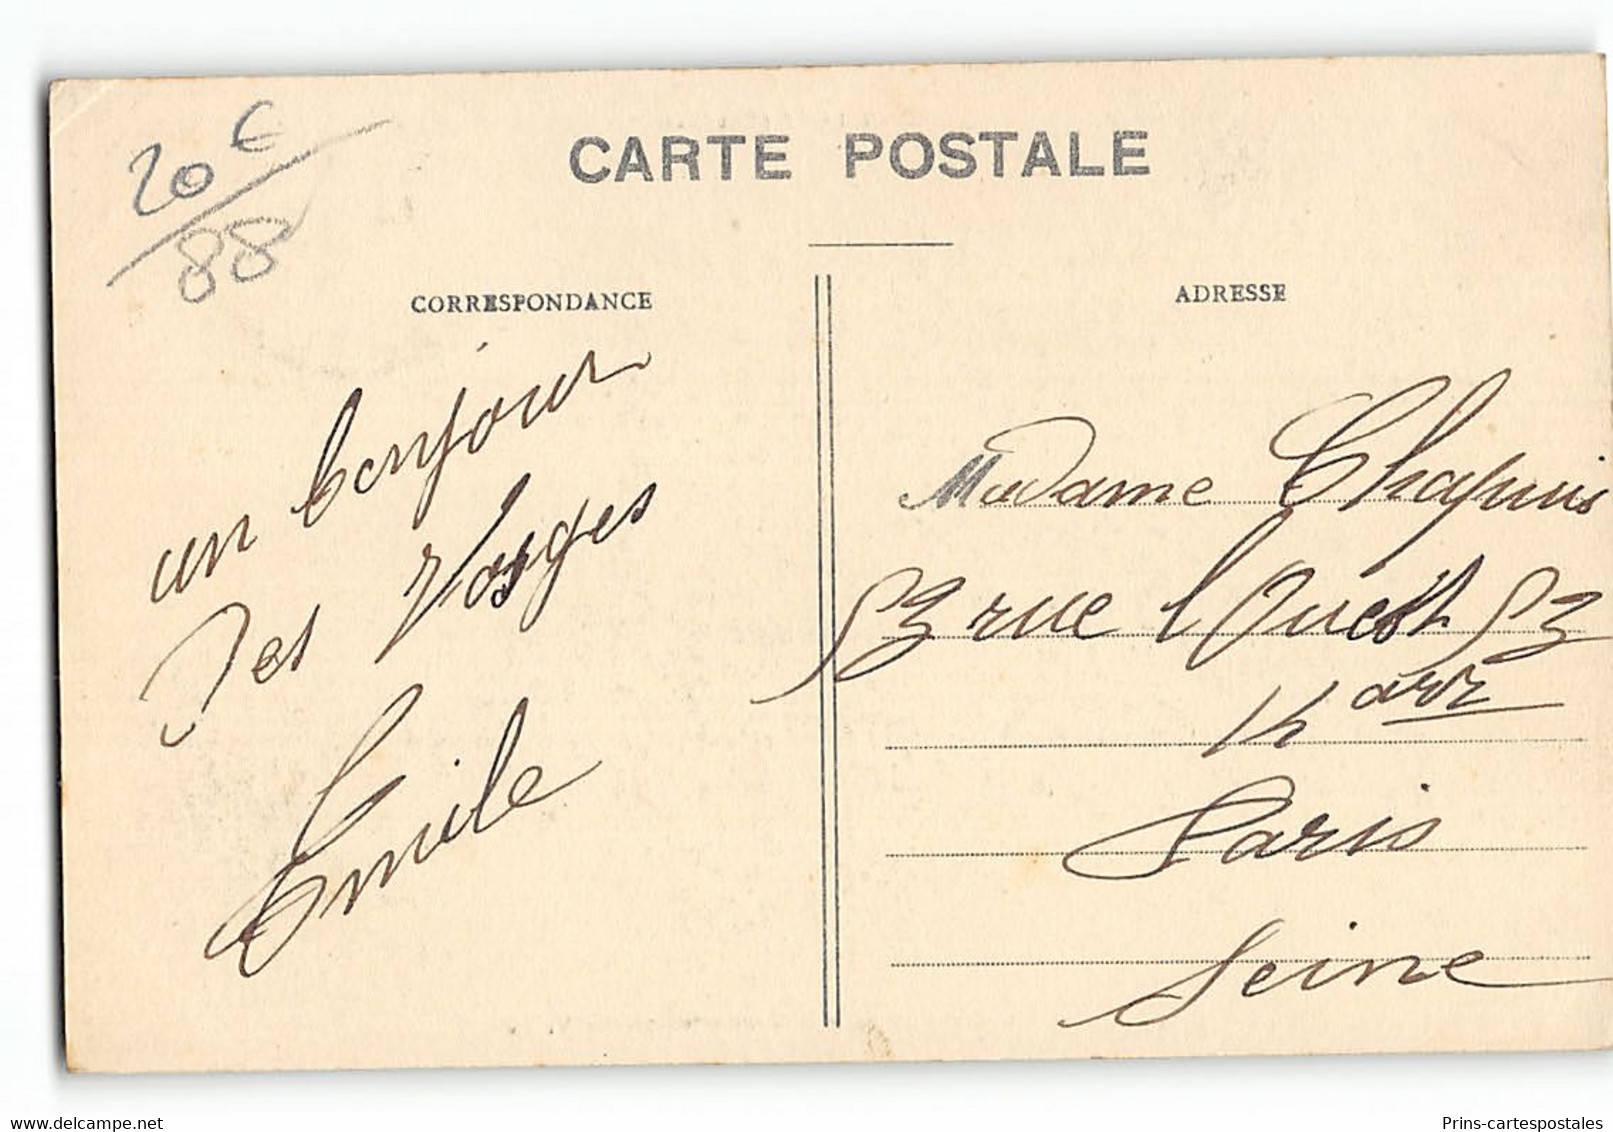 20 €
88
CARTE POSTALE
CORRESPONDANCE
un bonjour
des Vosges
Emile
ADRESSE
Madame Chapuis
53 rue l Ouest 53
14 arr
Paris
Seine
delcampe.net
Prins-cartespostales